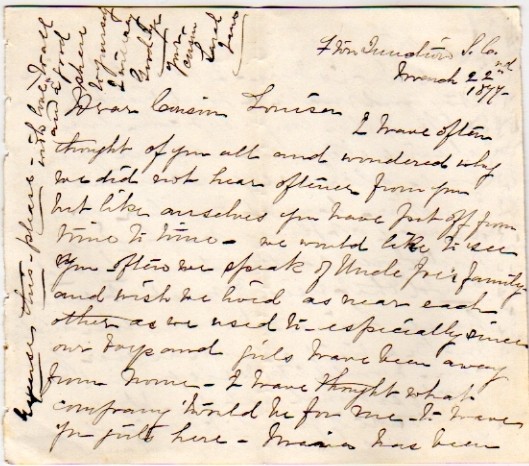 Junction S.C.
March 22nd
1877-
Dear Cousin Louisa
I have often
thought of you all and wondered why
we did not hear oftener from you
but like ourselves you have put off from
time to time - we would like to see
you often we speak of Uncle Joe's family
and wish we lived as near each
other as we used to - especially since
our boys and girls have been away
from home - I have thought what
company 'twould be for me - to have
yr girls here - has been
excuse this - please -
with love to all
and a good
share
for yourself
Goodbye
Your
cousin